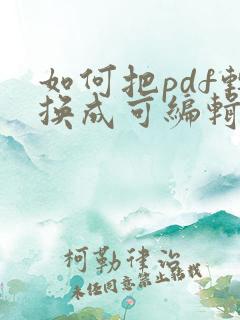 如何把pdf转
换成可编辑
柯勒律治
未经同意禁止转载